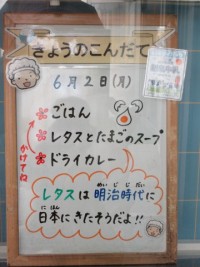 きょうのこんだて
6月2日(月)
ごはん
レタスとたまごのスープ
ドライカレー
かけてね
レタスは明治時代に
めいじじだい
日本にきたそうだよ!!
にほん